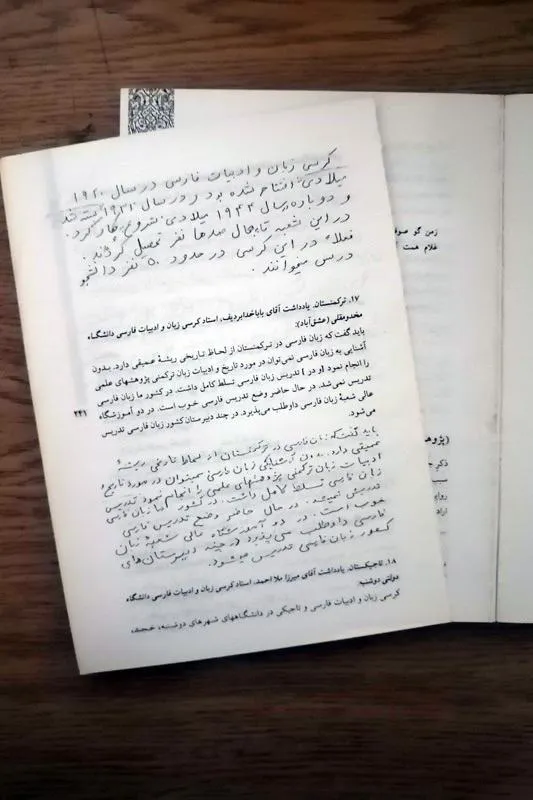 کرسی زبان و ادبیات فارسی در سال ۱۹۲۰
میلادی افتتاح شده بود و در سال ۱۹۳۱ بسته شد
و دوباره سال ۱۹۴۴ میلادی شروع بکار کرد.
در این شعبه تابحال صدها نفر تحصیل کردند.
فعلاً در این کرسی در حدود ۵۰ نفر دانشجو
درس میخوانند.
۱۷. ترکمنستان. یادداشت آقای باباخدابردیف، استاد کرسی زبان و ادبیات فارسی دانشگاه
مخدومقلی (عشق‌آباد):
باید گفت که زبان فارسی در ترکمنستان از لحاظ تاریخی ریشهٔ عمیقی دارد. بدون
آشنایی به زبان فارسی نمی‌توان در مورد تاریخ و ادبیات زبان ترکمنی پژوهشهای علمی
را انجام نمود [و در] تدریس زبان فارسی تسلط کامل داشت. در کشور ما زبان فارسی
تدریس نمی‌شد. در حال حاضر وضع تدریس فارسی خوب است. در دو آموزشگاه
عالی شعبهٔ زبان فارسی داوطلب می‌پذیرد. در چند دبیرستان کشور زبان فارسی تدریس
می‌شود
۲۴۱
باید گفت که: زبان فارسی در ترکمنستان از لحاظ تاریخی ریشهٔ
عمیقی دارد. بدون آشنایی زبان فارسی نمیتوان در مورد تاریخ و
ادبیات زبان ترکمنی پژوهشهای علمی را انجام نمود تدریس
زبان فارسی تسلط کامل داشت. در کشور ما زبان فارسی
تدریس نمیشد. در حال حاضر وضع تدریس فارسی
خوب است. در دو آموزشگاه عالی شعبهٔ زبان
فارسی داوطلب می پذیرد در چند دبیرستان‌های
کشور زبان فارسی تدریس میشود.
۱۸. تاجیکستان. یادداشت آقای میرزا ملا احمد، استاد کرسی زبان و ادبیات فارسی دانشگاه
دولتی دوشنبه:
کرسی زبان و ادبیات فارسی و تاجیکی در دانشگاههای شهرهای دوشنبه، خجند،
زمن گو صوف
غلام همت
(پژوهش
ذکر
سبب
روای
اراد